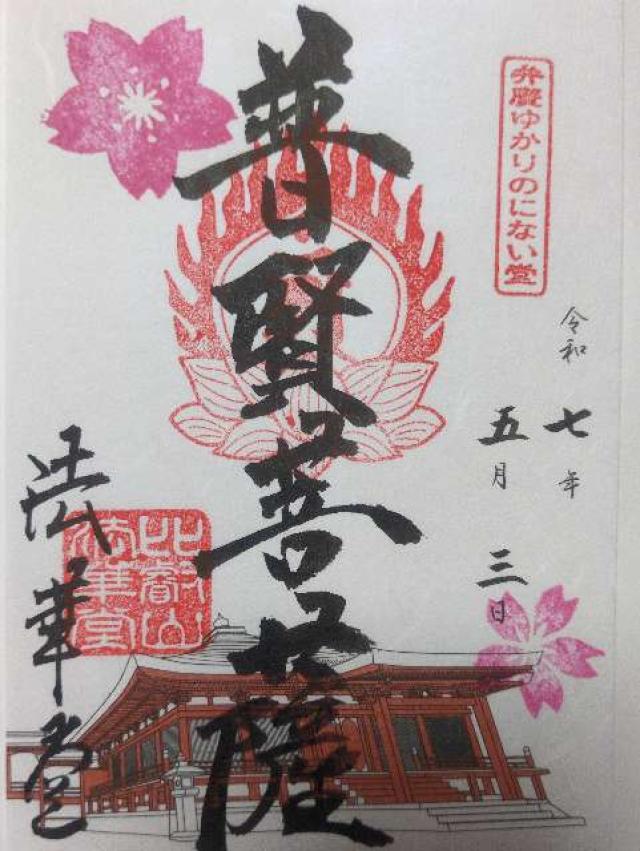 弁慶ゆかりのにない堂
令和七年
五月三日
普賢菩薩
比叡山
法華堂
法華堂